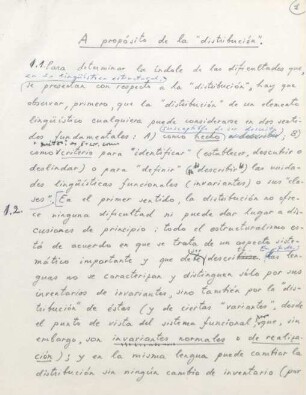 1
A propósito de la "distribución".
1.1. Para determinar la índole de las dificultades que
en la lingüística estructural
se presentan con respecto a la "distribución", hay que
observar, primero, que la "distribución" de un elemento
lingüístico cualquiera puede considerarse en dos senti-
dos fundamentales: A) como hecho susceptible de ser descrito, B)
como criterio para "identificar" (establecer, descubrir o
deslindar) o para "definir" ("describir") las unida-
des lingüísticas funcionales (invariantes) o sus "cla-
ses".
1.2. En el primer sentido, la distribución no ofre-
ce ninguna dificultad ni puede dar lugar a dis-
cusiones de principio: todo el estructuralismo es-
tá de acuerdo en que se trata de un aspecto siste-
mático importante y que debe describirse. Las
lenguas no se caracterizan y distinguen sólo por sus
inventarios de invariantes, sino también por la "dis-
tribución" de éstas (y de ciertas "variantes", desde
el punto de vista del sistema funcional, que, sin
embargo, son invariantes normales o de realiza-
ción); y en la misma lengua puede cambiar la
distribución sin ningún cambio de inventario (por